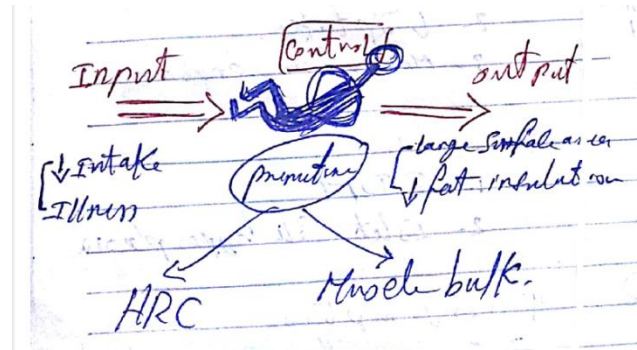 Control
Input
output
↓ Intake
Illness
large Surface area
↓ fat insulation
HRC
Muscle bulk.